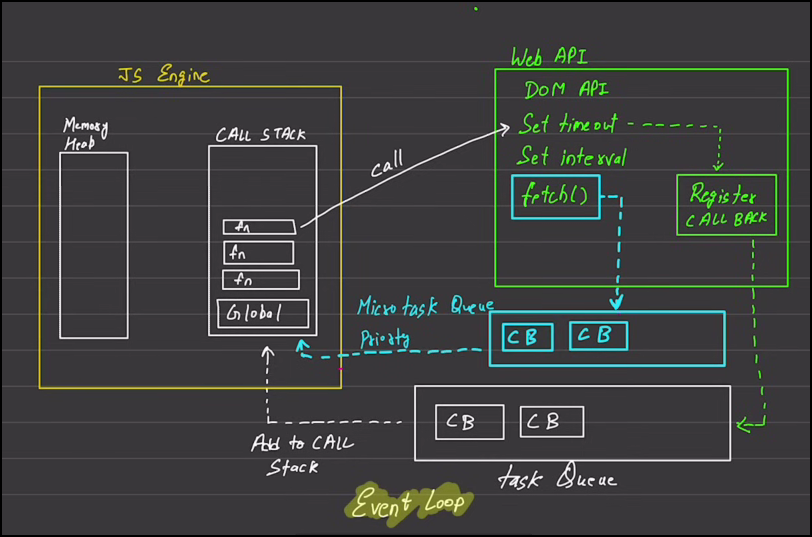 JS Engine
Memory
Heab
CALL STACK
fn
fn
fn
Global
call
Web API
DOM API
Set timeout
Set interval
fetch()
Register
CALL BACK
Microtask Queue
Priority
CB CB
CB CB
Add to CALL
Stack
task Queue
Event Loop